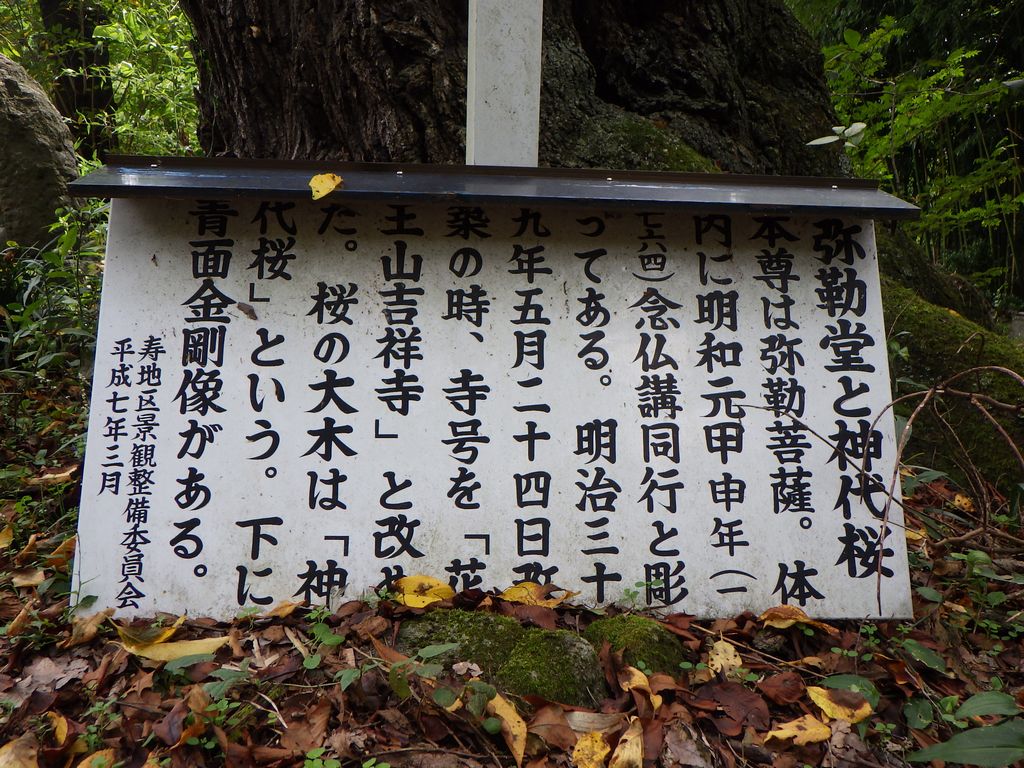 弥勒堂と神代桜
本尊は弥勒菩薩。体
内に明和元甲申年(一
七六四)念仏講同行と彫
ってある。明治三十
九年五月二十四日改
築の時、寺号を「花
王山吉祥寺」と改め
た。桜の大木は「神
代桜」という。下に
青面金剛像がある。
寿地区景観整備委員会
平成七年三月